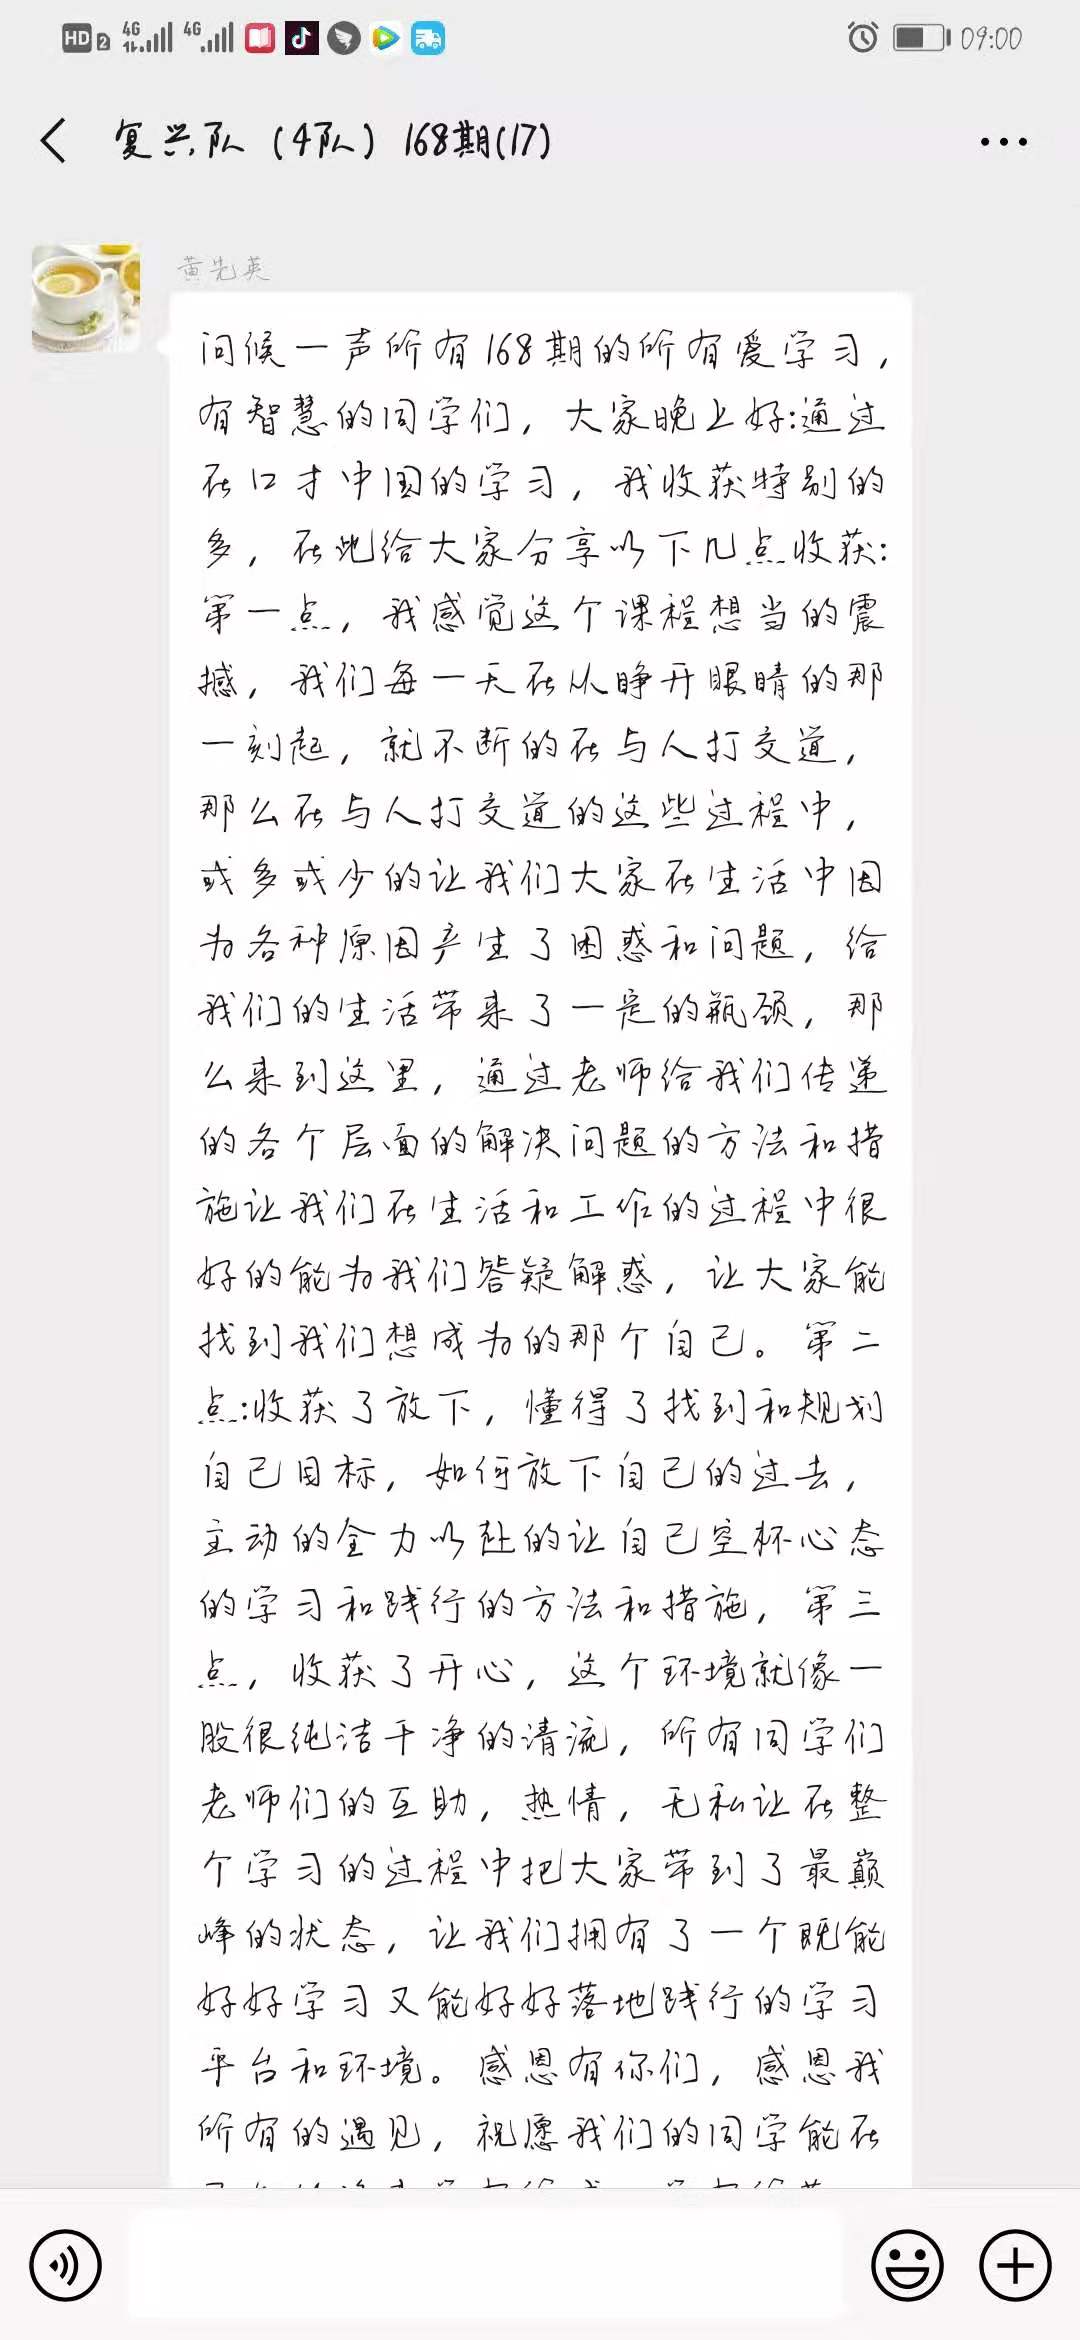 HD 2 4G 4G 09:00
复兴队（4队）168期(17)
黄先英
问候一声所有168期的所有爱学习，
有智慧的同学们，大家晚上好:通过
在口才中国的学习，我收获特别的
多，在此给大家分享以下几点收获:
第一点，我感觉这个课程想当的震
撼，我们每一天在从睁开眼睛的那
一刻起，就不断的在与人打交道，
那么在与人打交道的这些过程中，
或多或少的让我们大家在生活中因
为各种原因产生了困惑和问题，给
我们的生活带来了一定的瓶颈，那
么来到这里，通过老师给我们传递
的各个层面的解决问题的方法和措
施让我们在生活和工作的过程中很
好的能为我们答疑解惑，让大家能
找到我们想成为的那个自己。第二
点:收获了放下，懂得了找到和规划
自己目标，如何放下自己的过去，
主动的全力以赴的让自己空杯心态
的学习和践行的方法和措施，第三
点，收获了开心，这个环境就像一
股很纯洁干净的清流，所有同学们
老师们的互助，热情，无私让在整
个学习的过程中把大家带到了最巅
峰的状态，让我们拥有了一个既能
好好学习又能好好落地践行的学习
平台和环境。感恩有你们，感恩我
所有的遇见，祝愿我们的同学能在